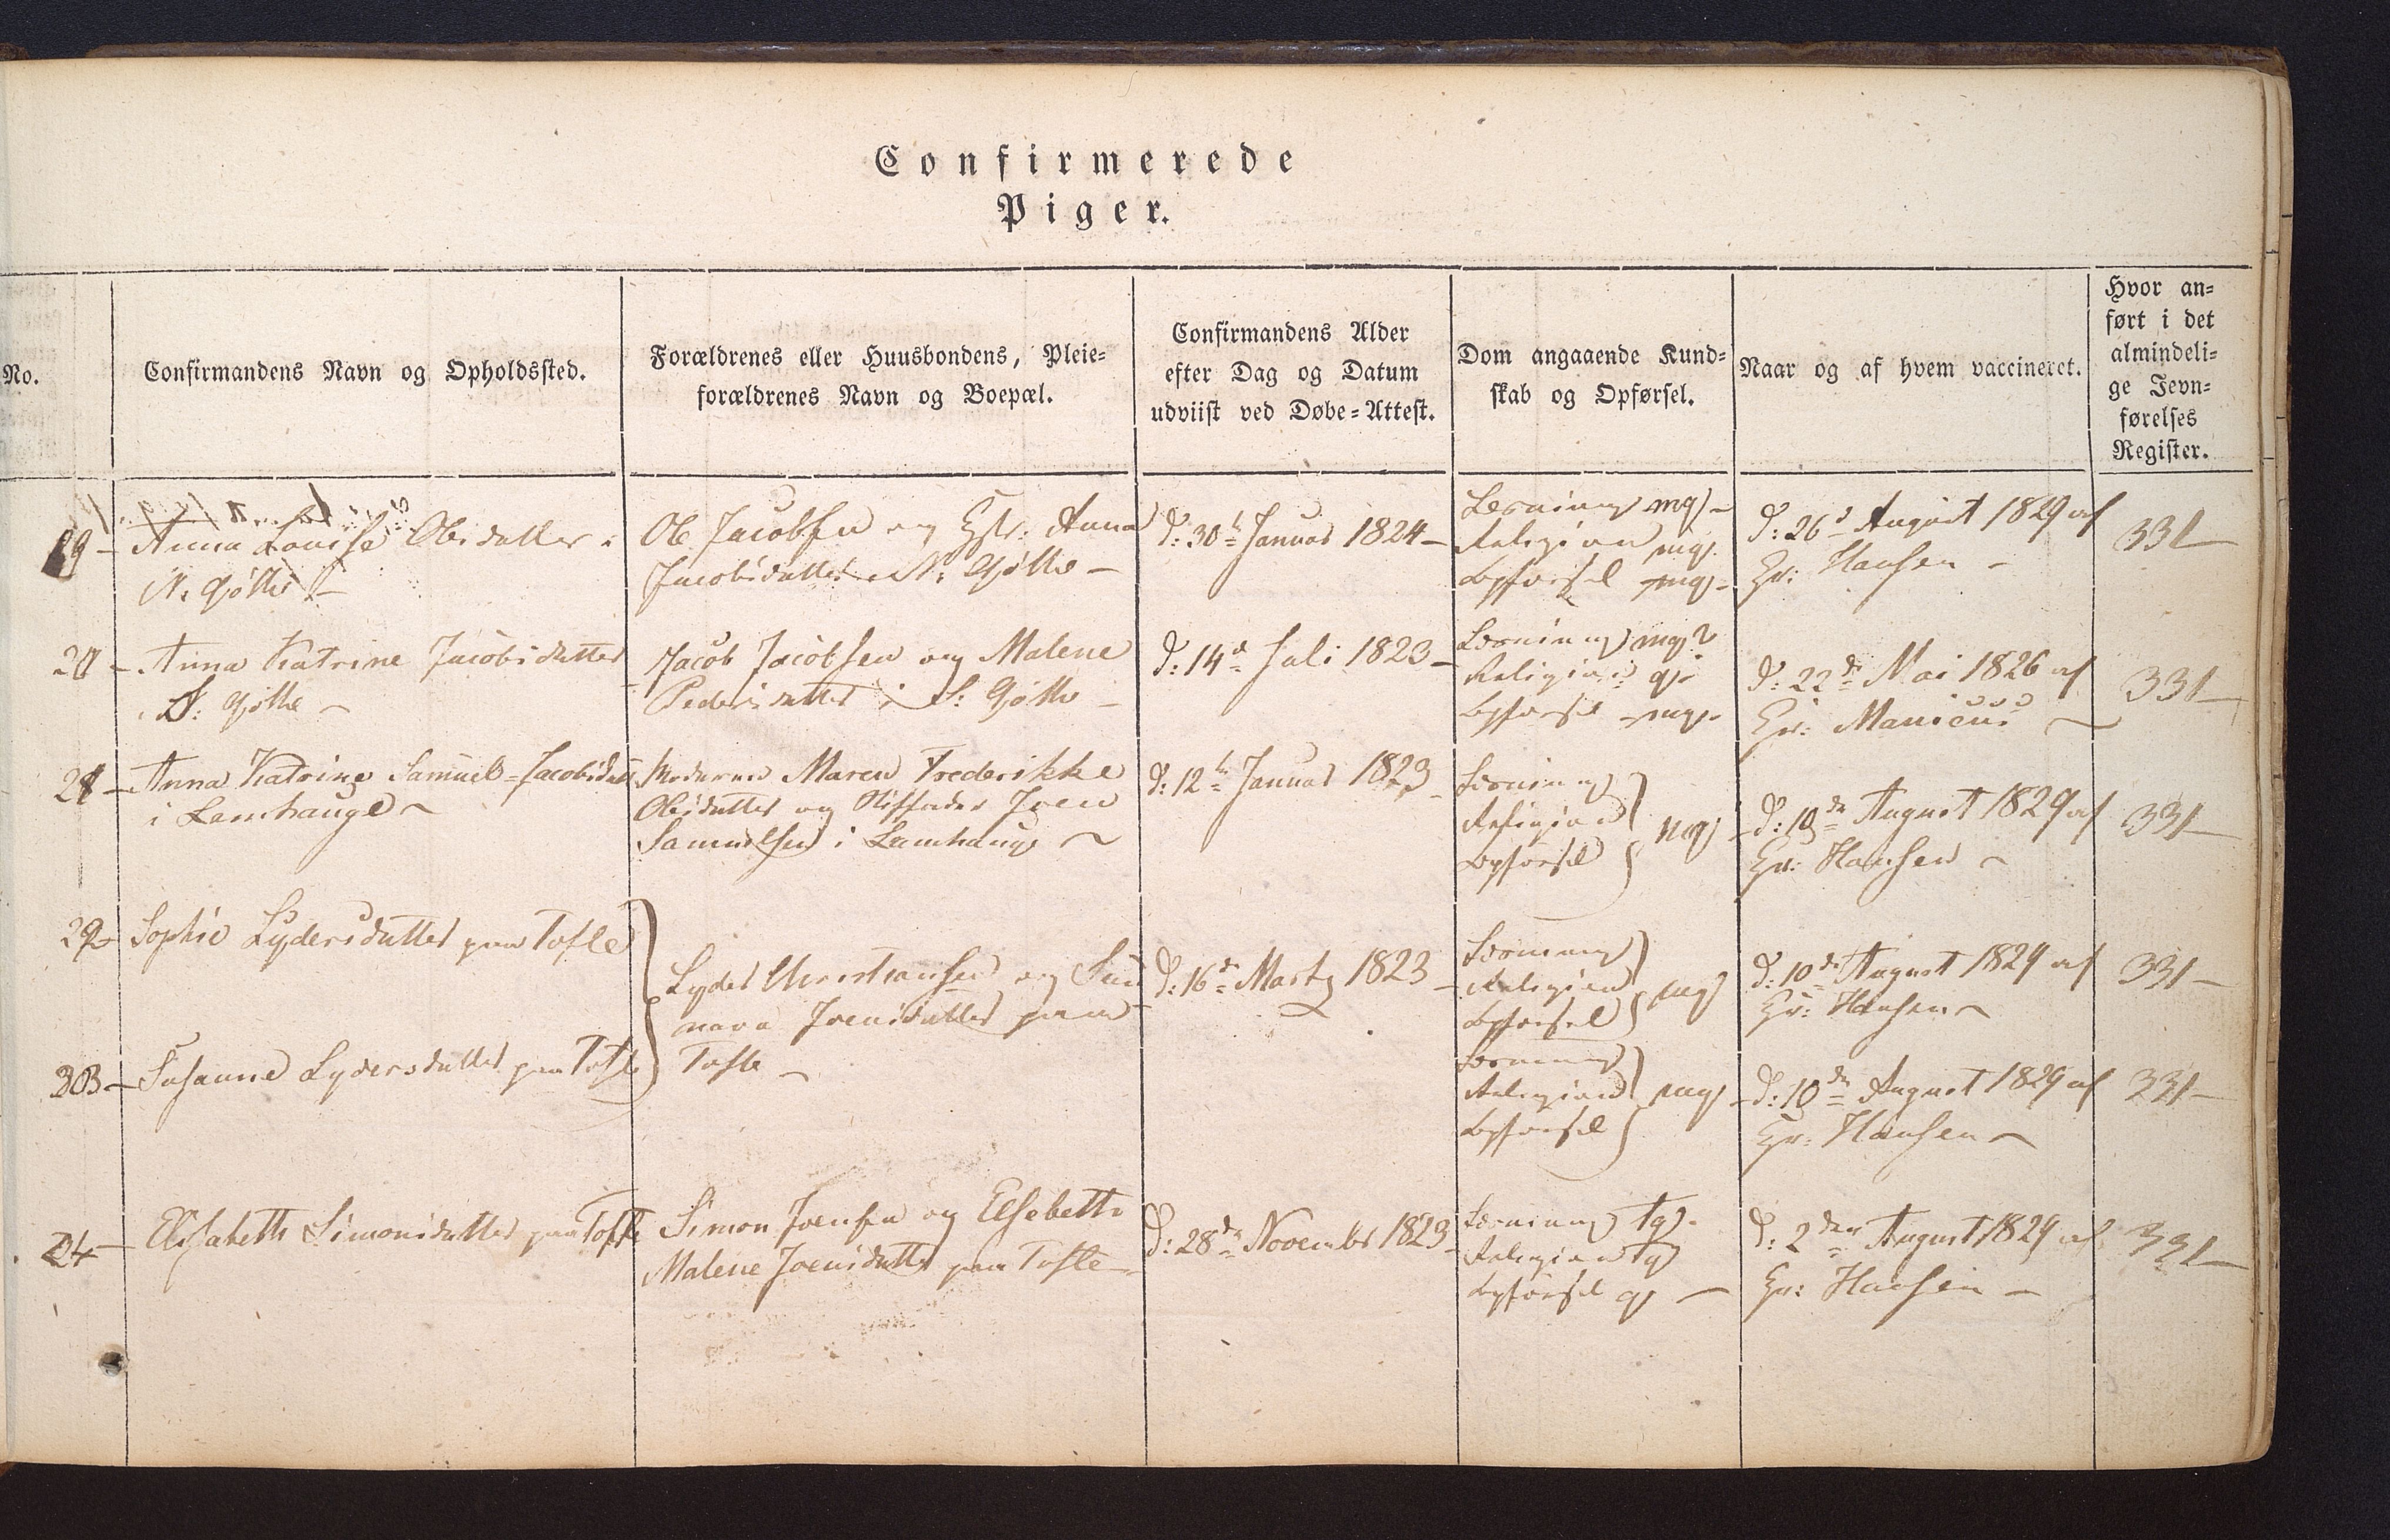 Confirmerede
Piger.
No.
Confirmandens Navn og Opholdssted.
Forældrenes eller Huusbondens, Pleie-
forældrenes Navn og Boepæl.
Confirmandens Alder
efter Dag og Datum
udviist ved Døbe-Attest.
Dom angaaende Kund-
skab og Opførsel.
Naar og af hvem vaccineret.
Hvor an-
ført i det
almindeli-
ge Jevn-
førelses
Register.
19 - Anna Louise Olesdatter i
N. Gøthe -
Ole Jacobsen og Hstr: Anna
Jacobsdatter i N: Gøthe -
d: 30te Januar 1824 -
Læsning mg -
Religion mg.
Opførsel mg -
d: 26d August 1829 af
Hr: Hansen -
331 -
20 - Anna Katrine Jacobsdatter
S: Gøthe -
Jacob Jacobsen og Malene
Pedersdatter i S: Gøthe -
d: 14d Juli 1823 -
Læsning mg?
Religion g.
Opførsel mg.
d: 22de Mai 1826 af
Hr: Manicus
331 -
21 - Anna Katrine Samuel-Jacobsdatt
i Lamhauge
Moderen Maren Frederikke
Olesdatter og Stiffader Joen
Samuelsen i Lamhauge
d: 12te Januar 1823
Læsning
Religion
Opførsel
mg -
d: 10de August 1829 af
Hr: Hansen
331 -
22 - Sophie Lydersdatter paa Tofte
Lyder Christiansen og Sun
nava Joensdatter paa
Tofte -
d: 16de Marty 1823 -
Læsning
Religion
Opførsel
mg
d: 10de August 1829 af
Hr: Hansen
331 -
23 - Susanne Lydersdatter paa Tofte
Læsning
Religion
Opførsel
mg -
d: 10de August 1829 af
Hr: Hansen
331 -
24 - Elisabeth Simonsdatter paa Tofte
Simon Joensen og Elsebeth
Malene Joensdatter paa Tofte -
d: 28de November 1823 -
Læsning tg.
Religion tg
Opførsel g -
d: 2den August 1829 af
Hr: Hansen -
331 -